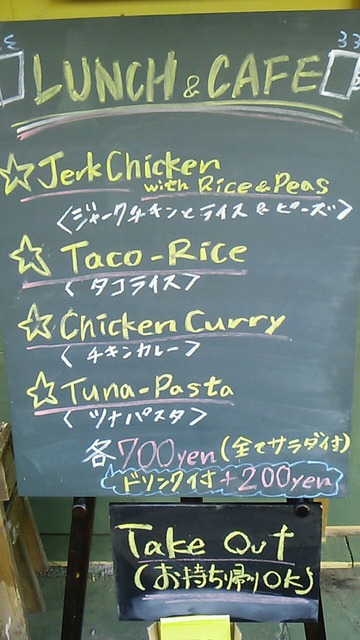 LUNCH & CAFE
Jerk Chicken
with Rice & Peas
<ジャークチキンとライス&ピーズ>
Taco-Rice
<タコライス>
Chicken Curry
<チキンカレー>
Tuna-Pasta
<ツナパスタ>
各700yen(全てサラダ付)
ドリンク付+200yen
Take Out
(お持ち帰りOK)